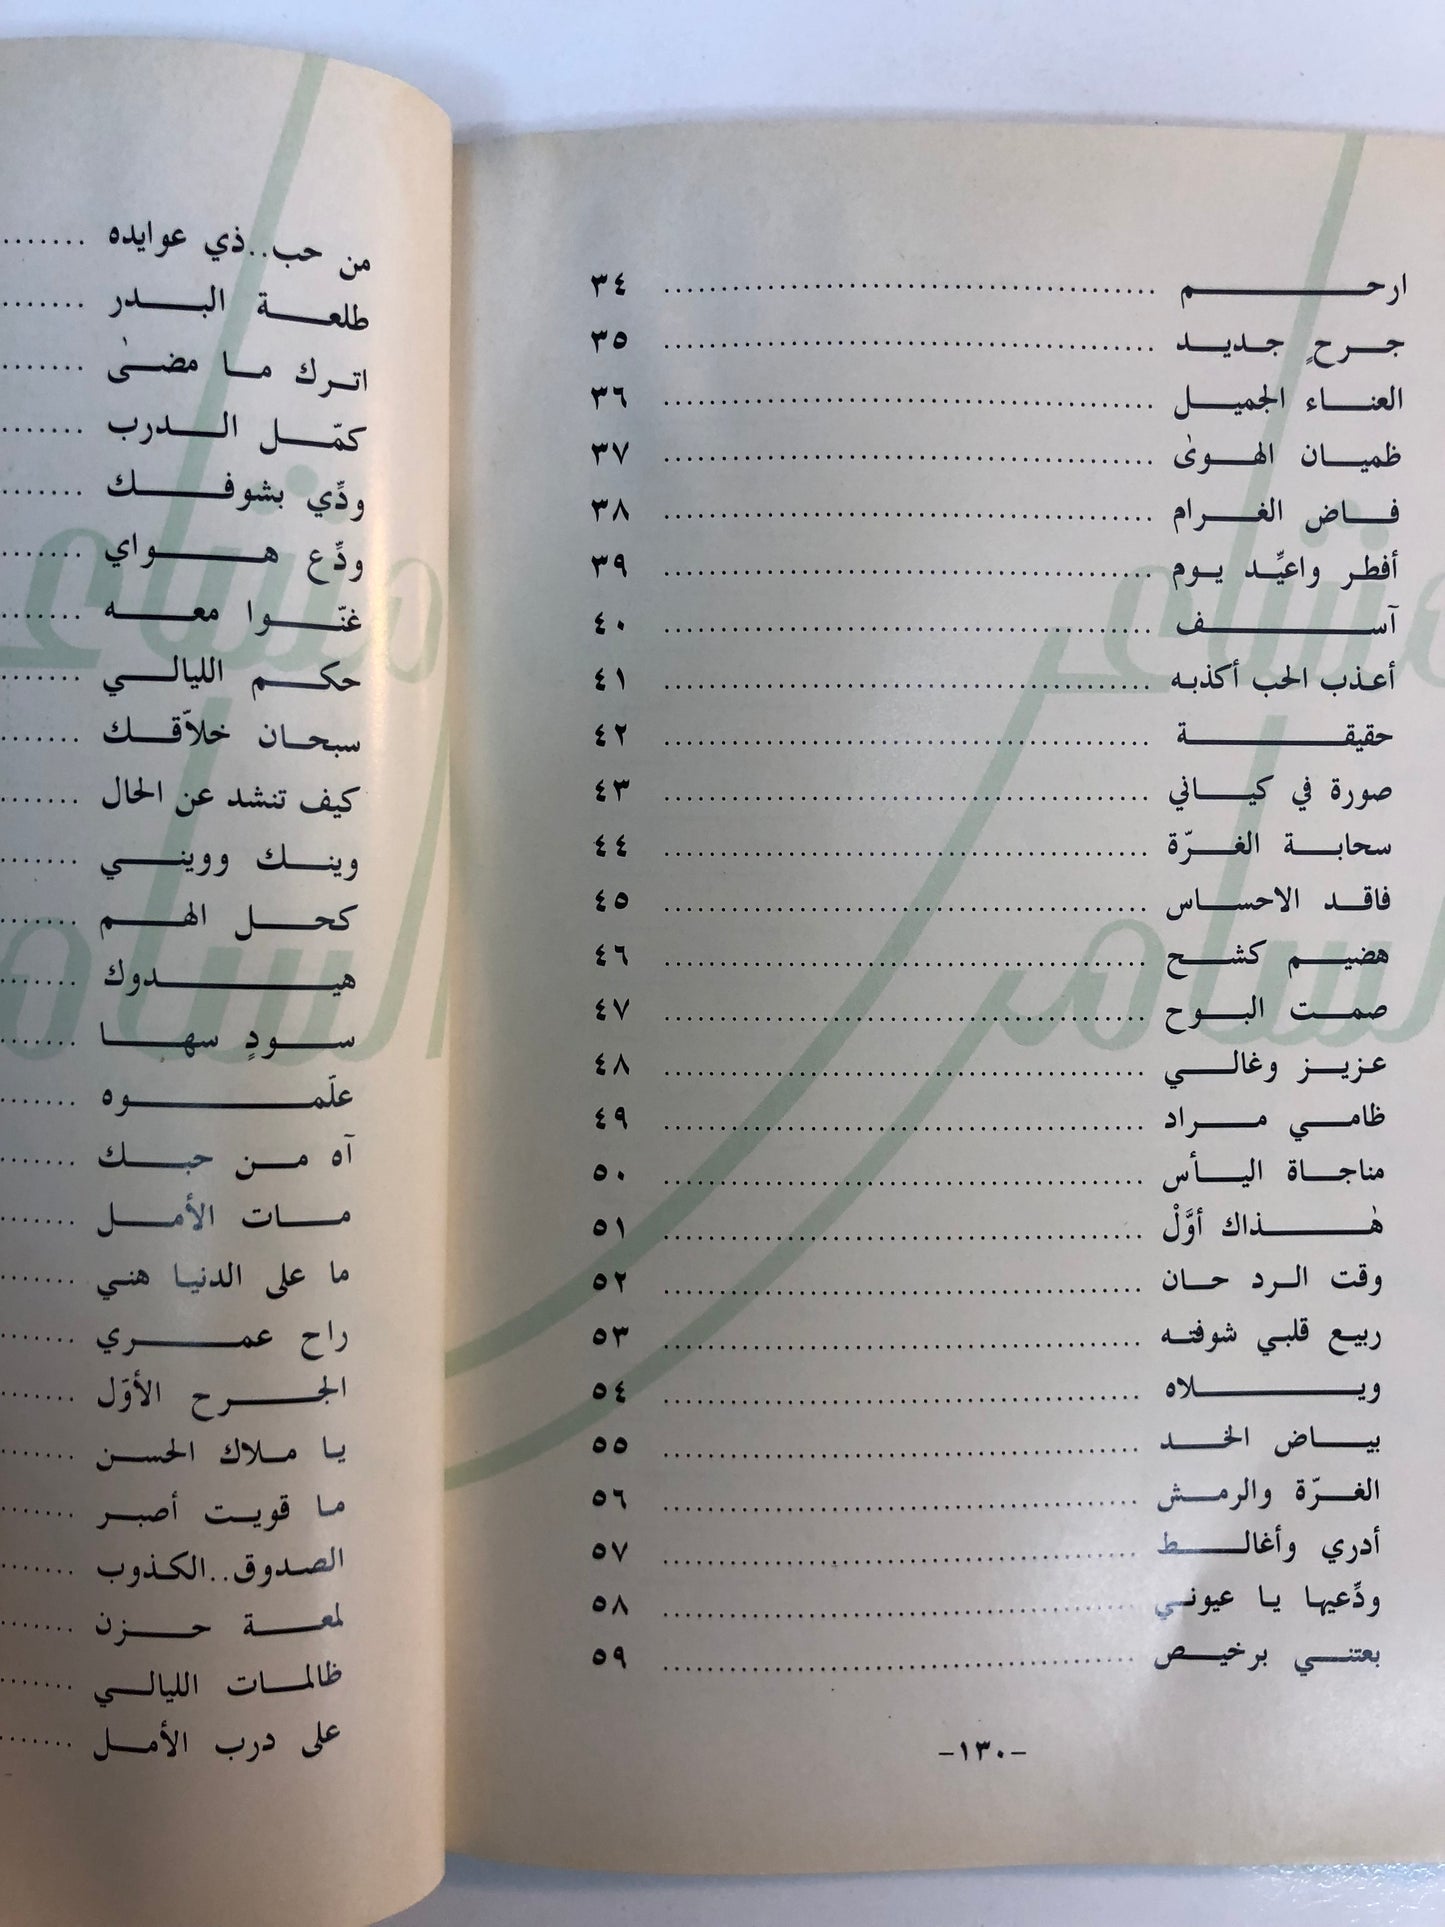 ارحم ........ ٣٤
جرحٍ جديد ........ ٣٥
العناء الجميل ........ ٣٦
ظميان الهوىٰ ........ ٣٧
فاض الغرام ........ ٣٨
أفطر واعيِّد يوم ........ ٣٩
آسف ........ ٤٠
أعذب الحب أكذبه ........ ٤١
حقيقة ........ ٤٢
صورة في كياني ........ ٤٣
سحابة الغرّة ........ ٤٤
فاقد الاحساس ........ ٤٥
هضيم كشح ........ ٤٦
صمت البوح ........ ٤٧
عزيز وغالي ........ ٤٨
ظامي مراد ........ ٤٩
مناجاة اليأس ........ ٥٠
هٰذاك أوَّلْ ........ ٥١
وقت الرد حان ........ ٥٢
ربيع قلبي شوفته ........ ٥٣
ويلاه ........ ٥٤
بياض الخد ........ ٥٥
الغرّة والرمش ........ ٥٦
أدري وأغالط ........ ٥٧
ودِّعيها يا عيوني ........ ٥٨
بعتني برخيص ........ ٥٩
-١٣٠-
من حب..ذي عوايده ........
طلعة البدر ........
اترك ما مضىٰ ........
كمّل الدرب ........
ودِّي بشوفك ........
ودِّع هواي ........
غنّوا معه ........
حكم الليالي ........
سبحان خلاّقك ........
كيف تنشد عن الحال ........
وينك وويني ........
كحل الهم ........
هيدوك ........
سودٍ سهما ........
علّموه ........
آه من حبك ........
مات الأمل ........
ما على الدنيا هني ........
راح عمري ........
الجرح الأوّل ........
يا ملاك الحسن ........
ما قويت أصبر ........
الصدوق..الكذوب ........
لمعة حزن ........
ظالمات الليالي ........
على درب الأمل ........